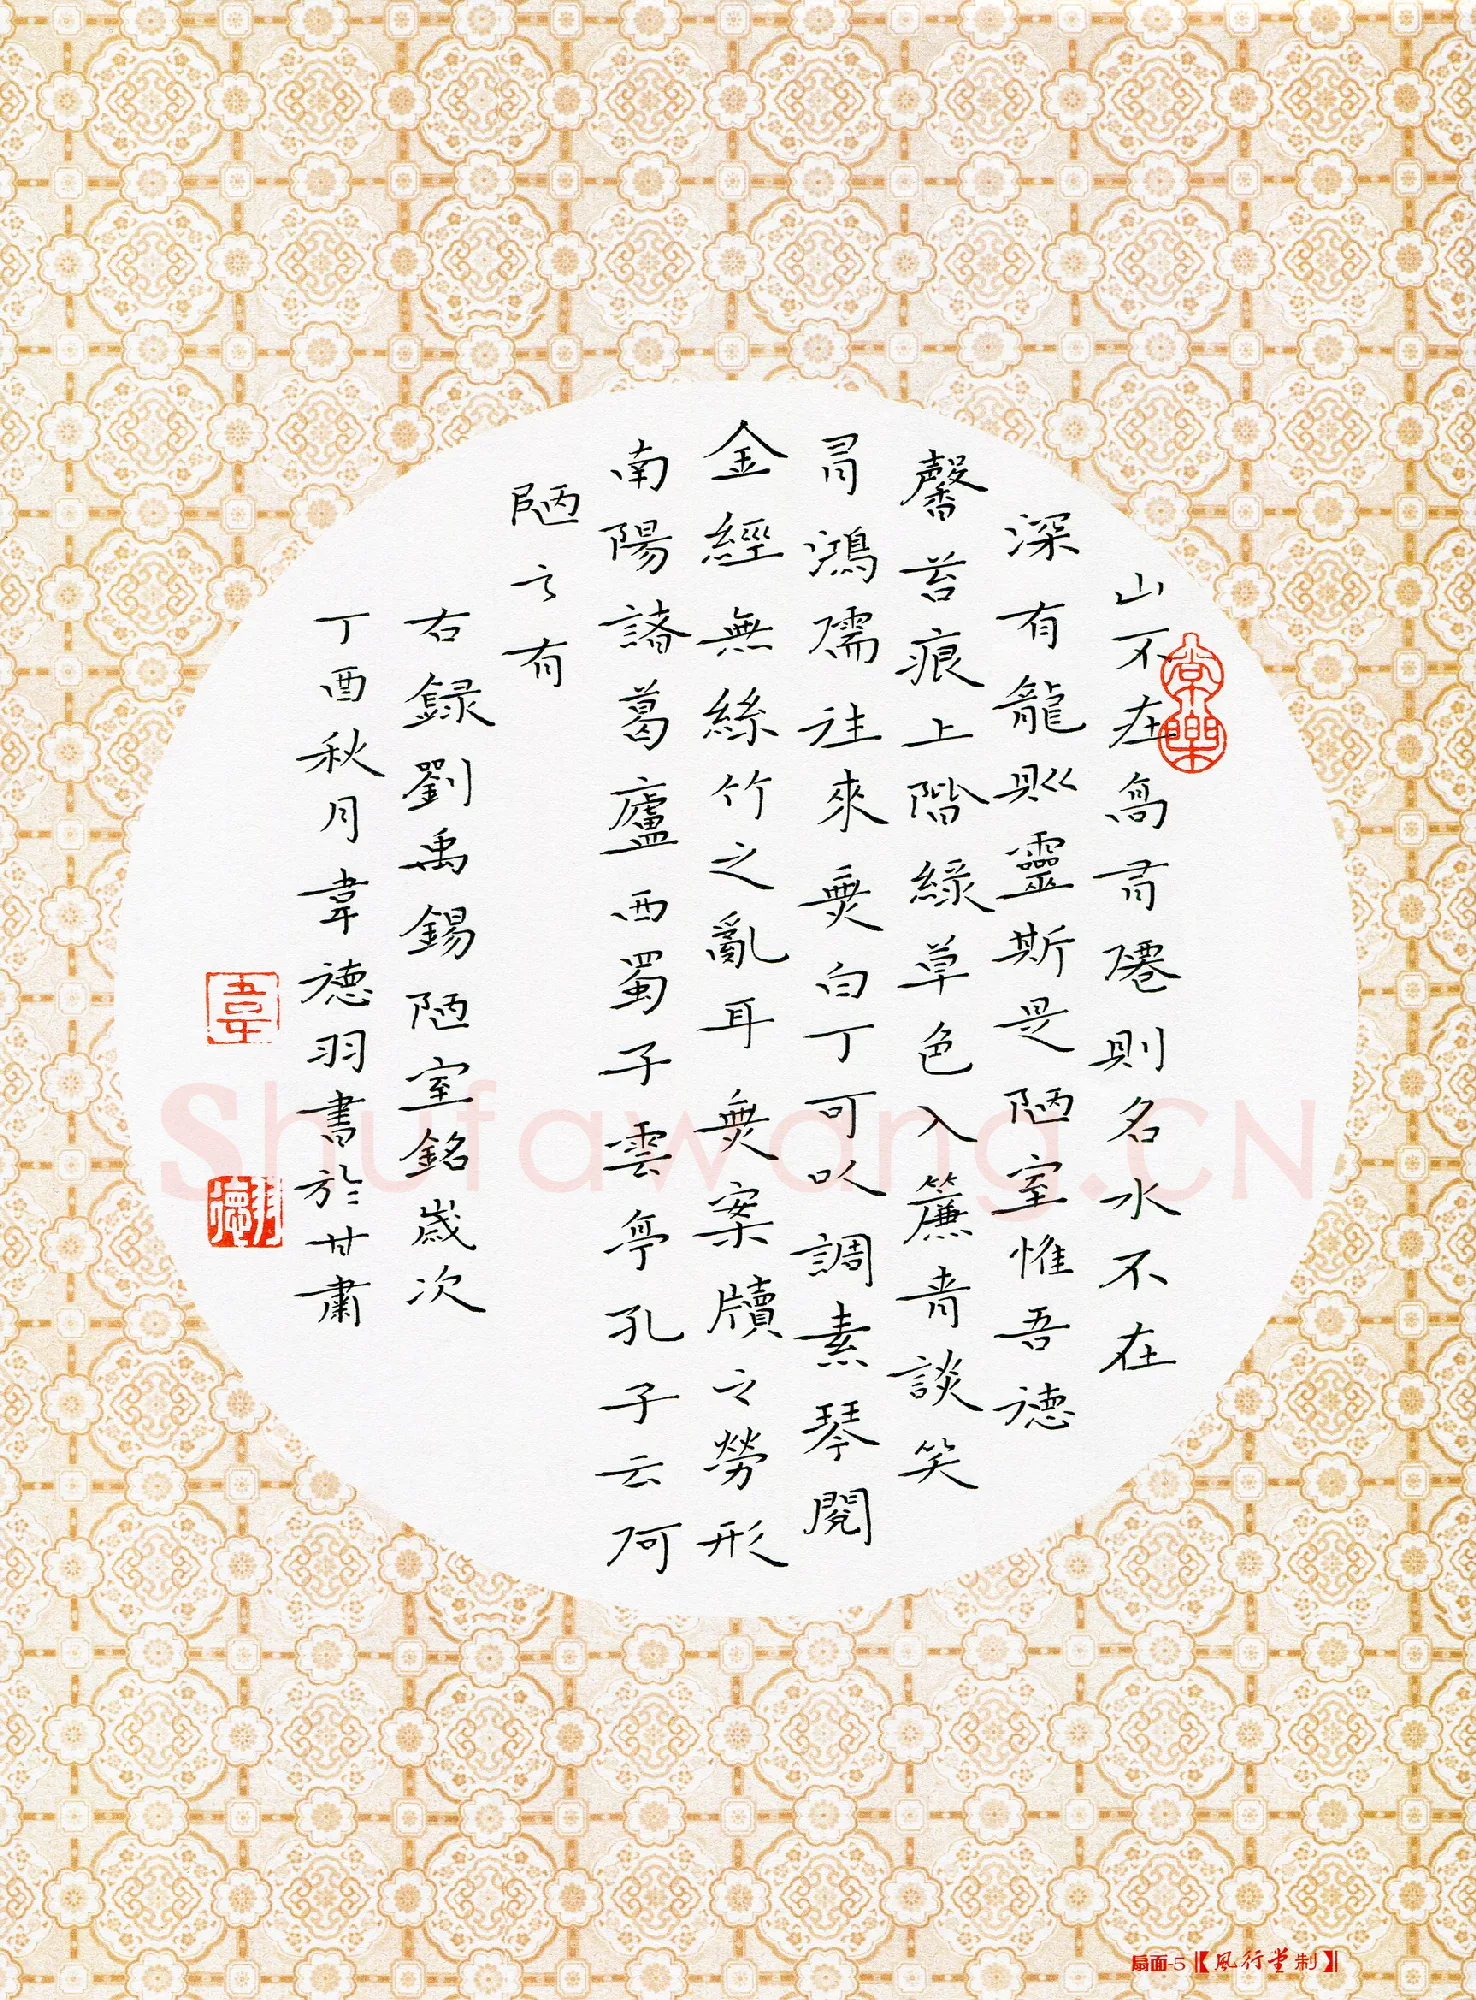 山不在高有僊則名水不在
深有龍則靈斯是陋室惟吾德
馨苔痕上階緑草色入簾青談笑
有鴻儒往來無白丁可以調素琴閱
金經無絲竹之亂耳無案牘之勞形
南陽諸葛廬西蜀子雲亭孔子云何
陋之有
右録劉禹錫陋室銘歲次
丁酉秋月韋德羽書於甘肅
常樂
韋
德羽
Shufawang.CN
扇面-5【風行堂制】